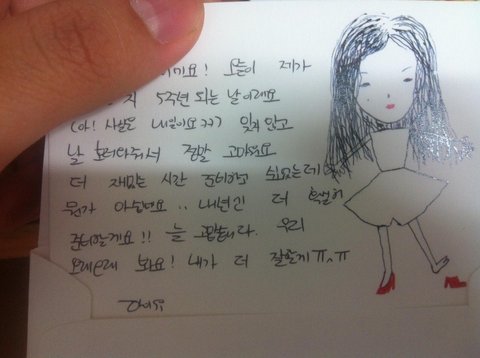 이거요! 오늘이 제가
지 5주년 되는 날이래요
(아! 사실은 내일이요ㅋㅋㅋ) 잊지 않고
날 불러줘서 정말 고마워요
더 재밌는 시간 준비하고 싶었는데
뭔가 아쉽네요.. 내년엔 더 확실히
준비할게요!! 늘 고맙습니다. 우리
오래오래 봐요! 내가 더 잘할게 ㅠㅅㅠ